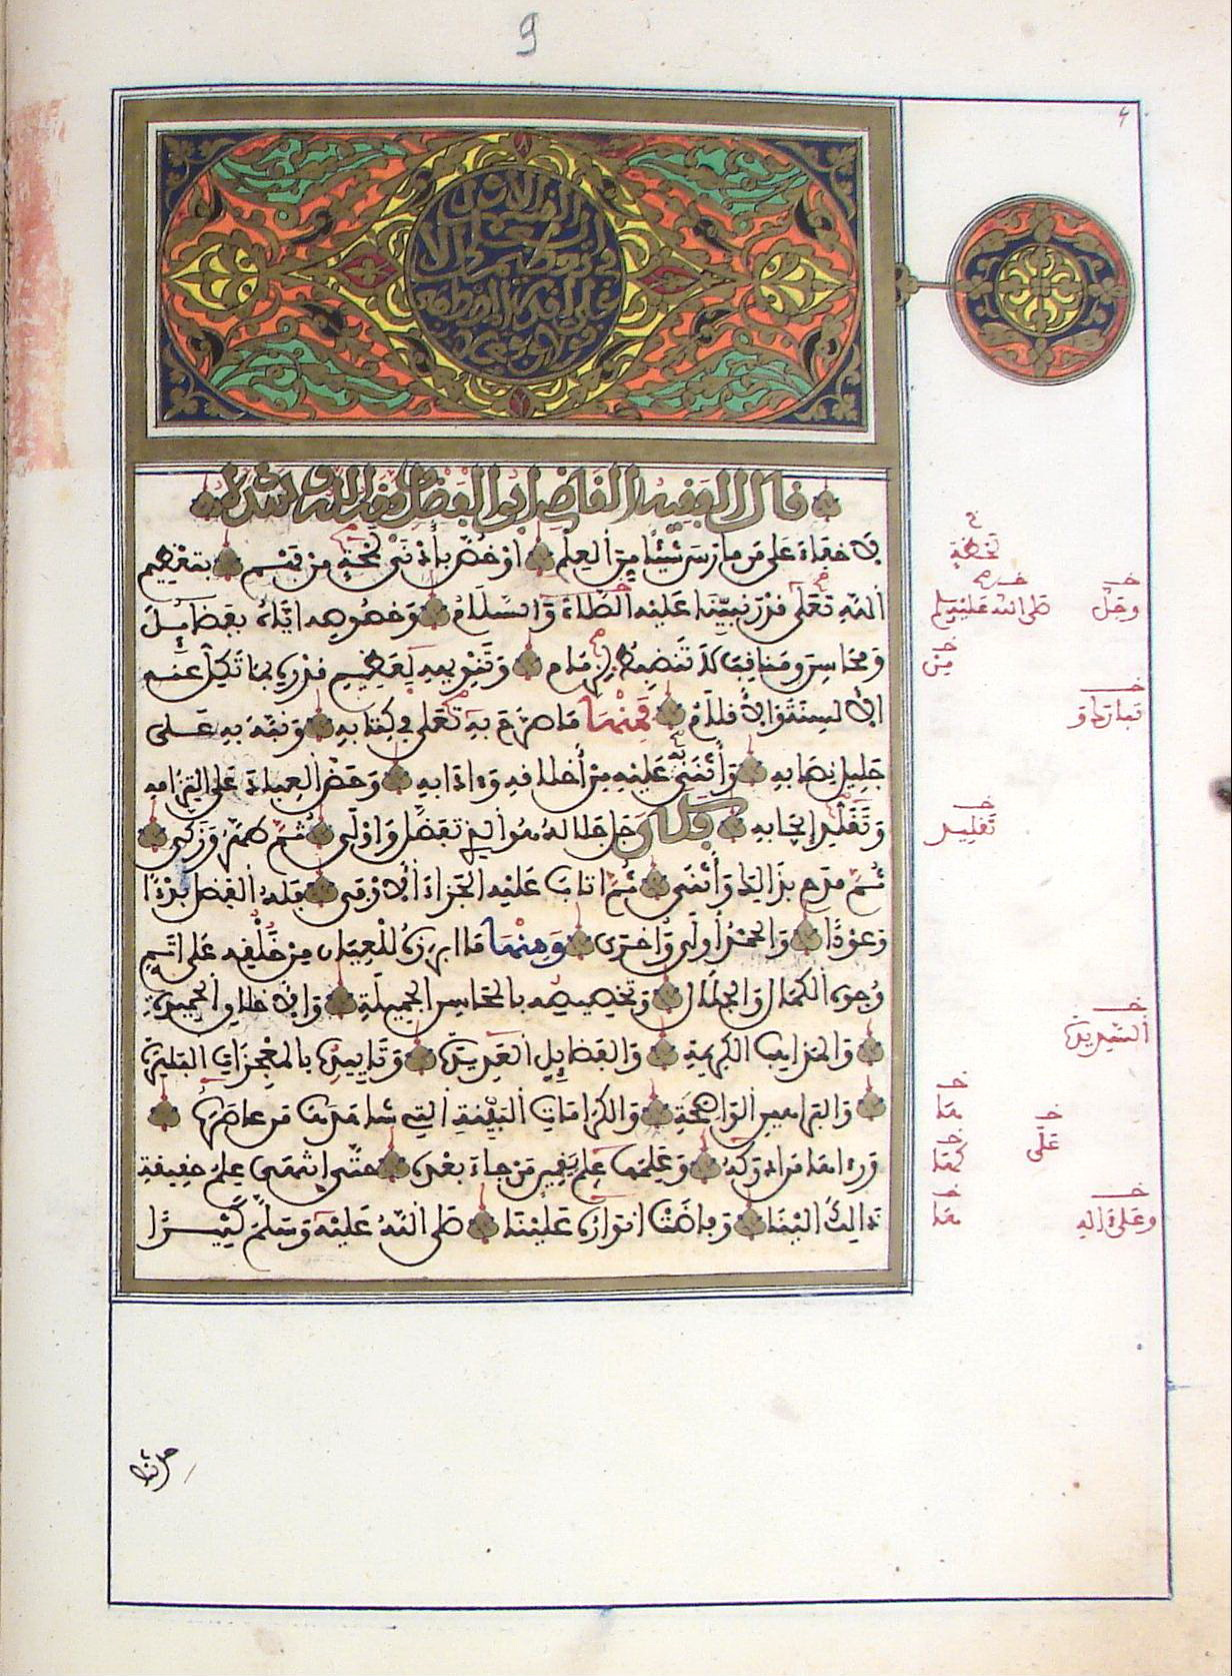 القسم الاول
في تعظيم العلي الا
على لقدر المصطفى
قولا وفعلا
قال الفقيه القاضي ابو الفضل وفقه الله وسدده
لا خفاء على من مارس شيئا من العلم او خص بادنى لمحة من فهم بتعظيم
الله تعلى قدر نبينا عليه الصلاة والسلام وخصوصه اياه بفضايل
ومحاسن ومناقب لا تنضبط لزمام وتنويهه بعظيم قدره بما تكل عنه
الالسنة والاقلام فمنها ما صرح به تعلى في كتابه ونبه به على
جليل نصابه وأثنى به عليه من أخلاقه وءادابه وحض العباد على التزامه
وتقلد إيجابه فكان جل جلاله هو الذي تفضل وأولى ثم طهر وزكى
ثم مدح بذالك وأثنى ثم اثاب عليه الجزاء الاوفى فله الفضل بدءا
وعودا والحمد أولى وأخرى ومنها ما ابرزه للعيان من خلقه على اتم
وجوه الكمال والجلال وتخصيصه بالمحاسن الجميلة والاخلاق الحميدة
والمذاهب الكريمة والفضايل العديدة وتاييده بالمعجزات
والبراهين الواضحة والكرامات البينة التي شاهدها من عاصره
ورءاها من ادركه وعلمها علم يقين من جاء بعده حتى انتهى علم حقيقة
ذالك الينا وفاضت انواره علينا صلى الله عليه وسلم كثيرا
وجل
صلى الله عليه وسلم
من
تبارك و
تقليد
السديدة
على
وعلى ءاله
حدثنا
9